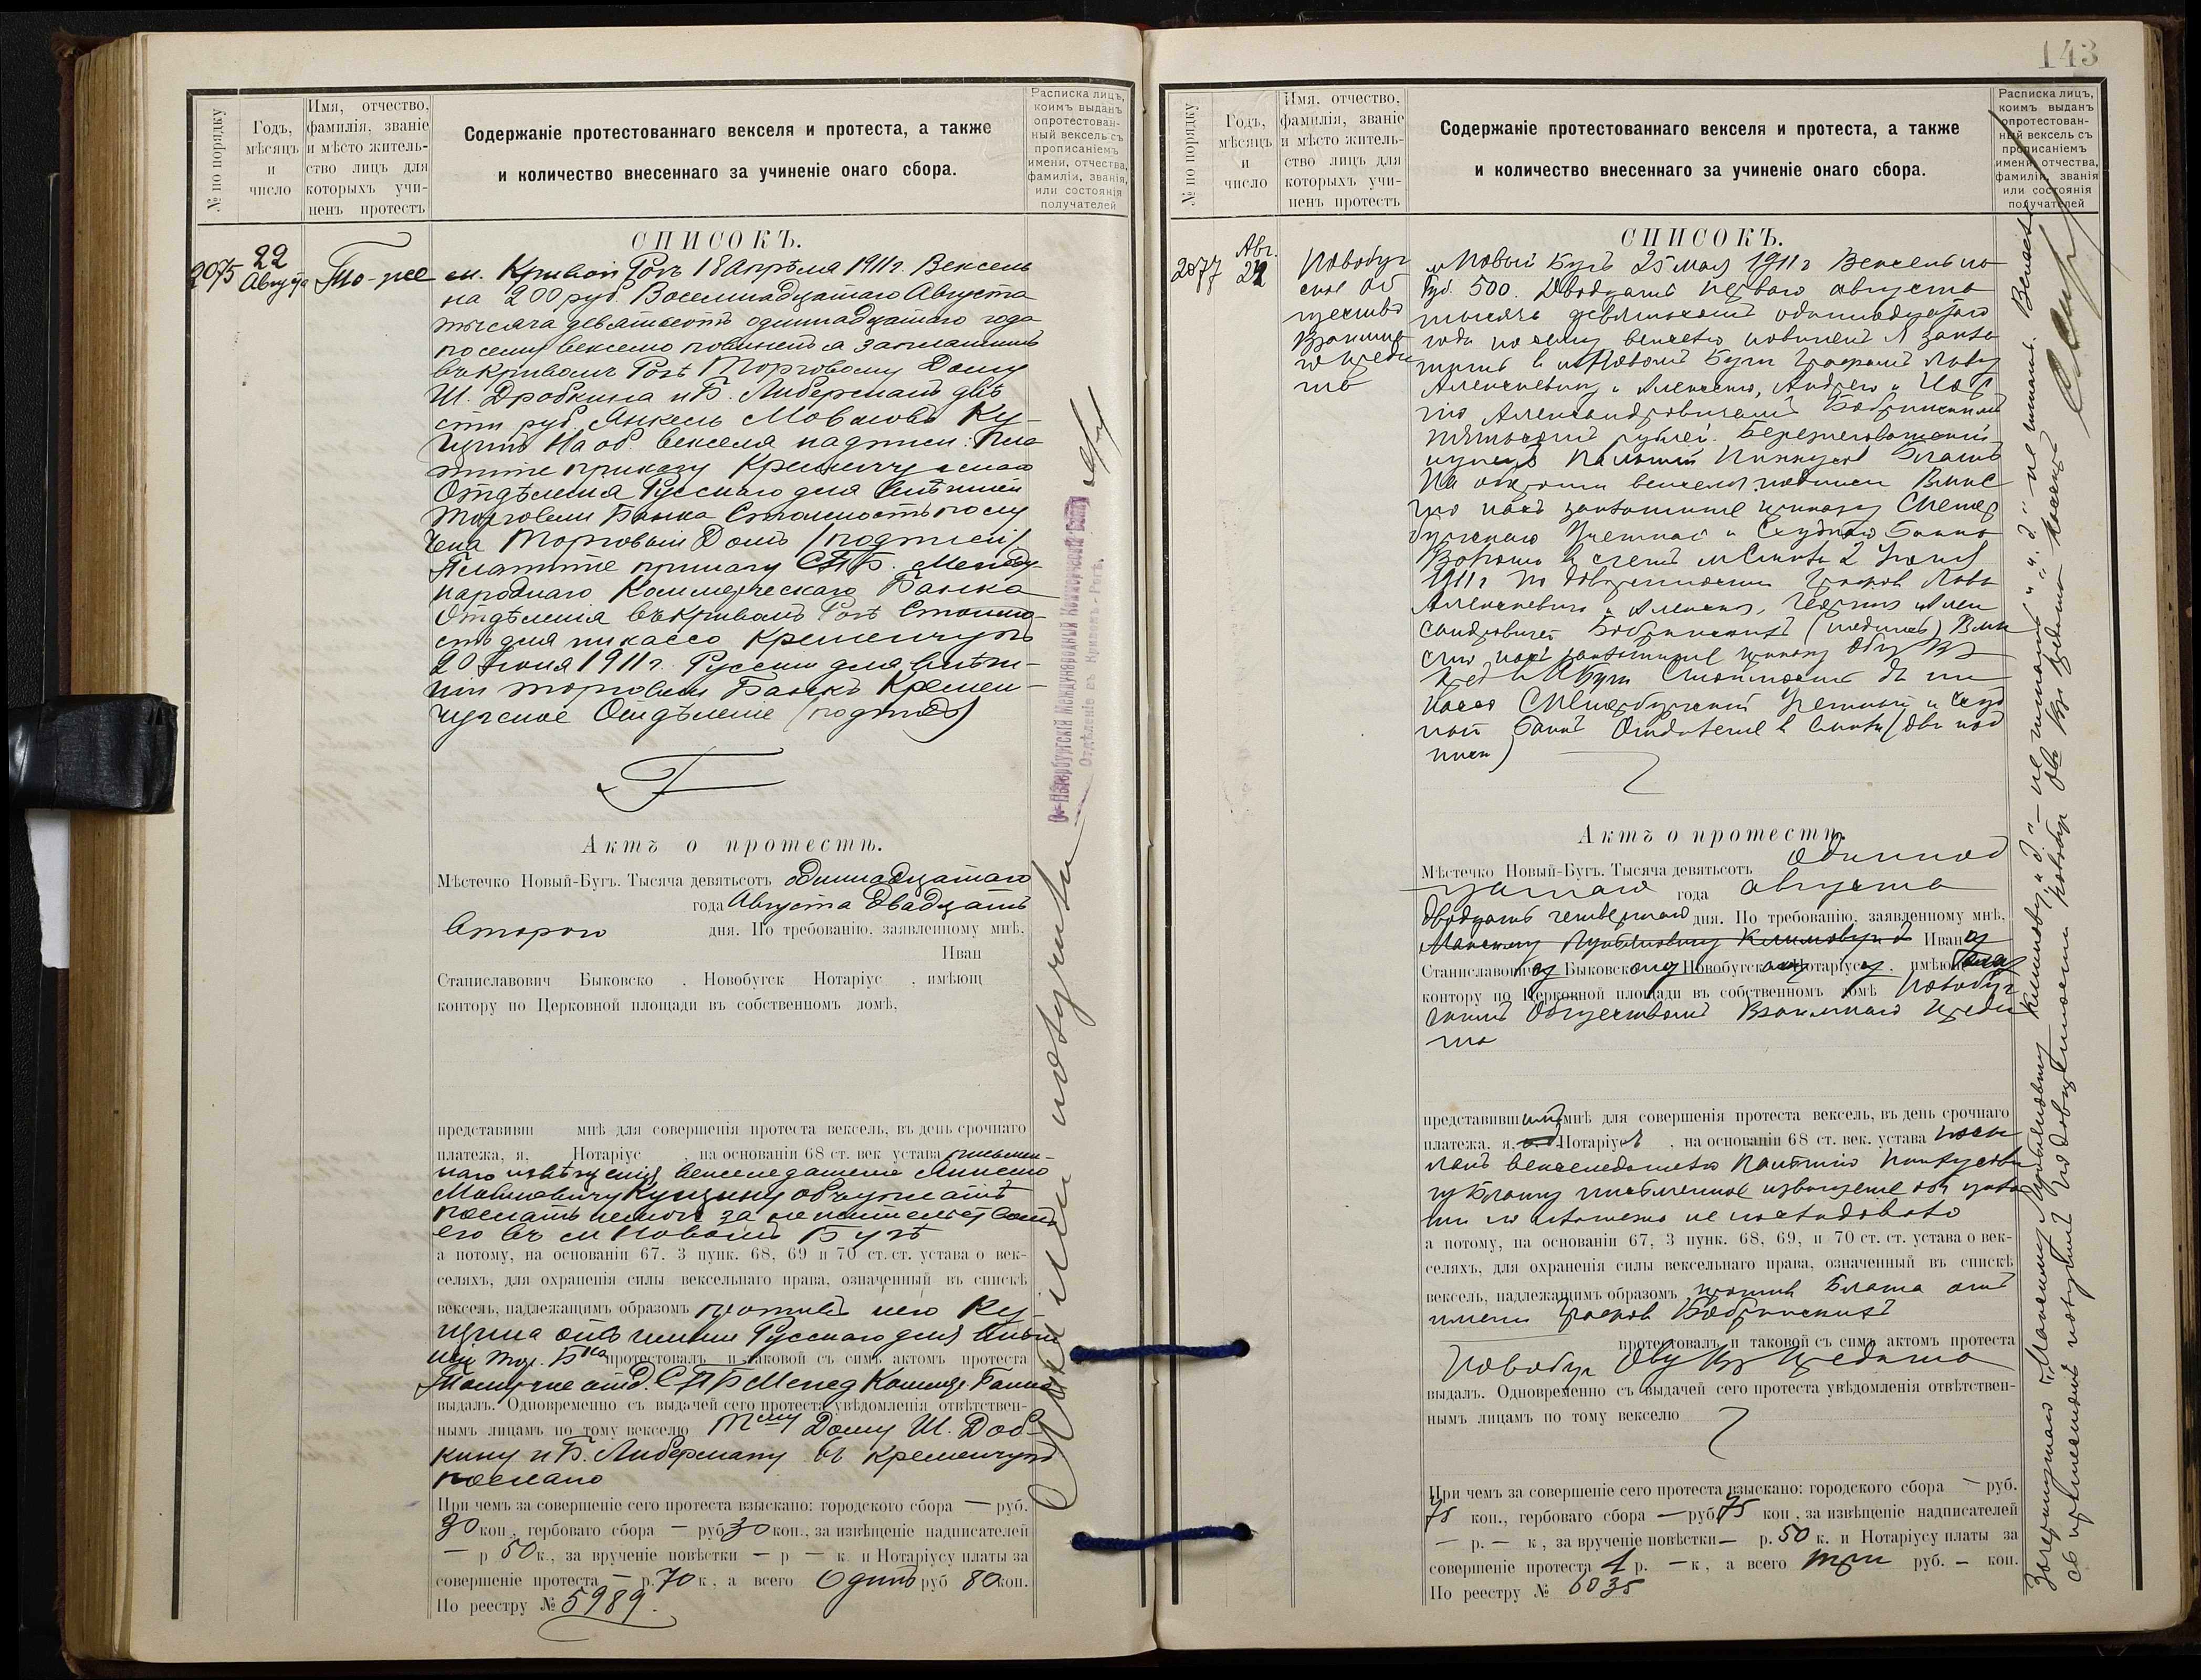 № по порядку
Годъ,
мѣсяцъ
и
число
Имя, отчество,
фамилія, званіе
и мѣсто житель-
ство лицъ для
которыхъ учи-
ненъ протестъ
Содержаніе протестованнаго векселя и протеста, а также
и количество внесеннаго за учиненіе онаго сбора.
Расписка лицъ,
коимъ выданъ
опротестован-
ный вексель съ
прописаніемъ
имени, отчества,
фамиліи, званія,
или состоянія
получателей
СПИСОКЪ.
2075
22
Августа
То-же
м. Кривой Рогъ 18 Апрѣля 1911 г. Вексель
на 200 руб. Восемнадцатаго Августа
тысяча девятьсотъ одиннадцатаго года
по сему векселю повиненъ я заплатить
въ Кривомъ Рогѣ Торговому Дому
Ш. Дробкина и Б. Либерманъ двѣ
сти руб. Янкель Мовшовъ Ку-
щинъ На об. векселя надписи: Пла
тите приказу Кременчугскаго
Отдѣленія Русскаго для внѣшней
торговли Банка Стоимость полу
чена Торговый Домъ /подписи/
Платите приказу СПБ. Между-
народнаго Коммерческаго Банка
Отдѣленія въ Кривомъ Рогѣ Стоимо-
сть для инкассо Кременчугъ
20 Іюня 1911 г. Русскій для внѣш-
ней торговли Банкъ Кремен-
чугское Отдѣленіе (подписи)
С.-Петербургскій Международный Коммерческій Банкъ
Отдѣленіе въ Кривомъ-Рогѣ.
Актъ о протестѣ.
Мѣстечко Новый-Бугъ. Тысяча девятьсотъ одиннадцатаго
года Августа двадцать
второго дня. По требованію, заявленному мнѣ,
Иван
Станиславович Быковско , Новобугск Нотаріус , имѣющ
контору по Церковной площади въ собственномъ домѣ,
представивш мнѣ для совершенія протеста вексель, въ день срочнаго
платежа, я, Нотаріус , на основаніи 68 ст. век. устава письмен-
наго извѣщенія векселедателю
Мовшовичу Кущину об уплатѣ
послать не могъ за не жительствомъ
его въ м Новомъ Бугѣ
а потому, на основаніи 67, 3 пунк. 68, 69 и 70 ст. ст. устава о век-
селяхъ, для охраненія силы вексельнаго права, означенный въ спискѣ
вексель, надлежащимъ образомъ противъ него Ку-
щина отъ имени Русскаго для внѣш
ней тор. Б-ка протестовалъ и таковой съ симъ актомъ протеста
отд. СПБ Межд Коммер. Банка
выдалъ. Одновременно съ выдачей сего протеста увѣдомленія отвѣтствен-
нымъ лицамъ по тому векселю Т-му Дому Ш. Доб-
кину и Б. Либерману въ Кременчугъ
послано
При чемъ за совершеніе сего протеста взыскано: городского сбора — руб.
30 коп., гербоваго сбора — руб 30 коп., за извѣщеніе надписателей
— р 50 к., за врученіе повѣстки — р — к. и Нотаріусу платы за
совершеніе протеста — р. 70 к, а всего Одинъ руб 80 коп.
По реестру № 5989.
143
№ по порядку
Годъ,
мѣсяцъ
и
число
Имя, отчество,
фамилія, званіе
и мѣсто житель-
ство лицъ для
которыхъ учи-
ненъ протестъ
Содержаніе протестованнаго векселя и протеста, а также
и количество внесеннаго за учиненіе онаго сбора.
Расписка лицъ,
коимъ выданъ
опротестован-
ный вексель съ
прописаніемъ
имени, отчества,
фамиліи, званія
или состоянія
получателей
СПИСОКЪ.
2077
Авг.
24
Новобуг
ское Об
щество
Взаимна
го Креди
та
м Новый Бугъ 25 мая 1911 г Вексель на
Руб. 500. Двадцать перваго августа
тысяча девятьсотъ одиннадцатаго
года по сему векселю повиненъ я запла
тить в м Новомъ Буге Графамъ Льву
Алексеевичу и Алексею, Андрею и Геор
гию Александровичамъ Бобринскимъ
пятьсотъ рублей. Березнеговатский
купецъ Пинкусов Блатъ
На обороти векселя надписи Вмес
то насъ заплатите приказу СПетер
бургскаго Учетнаго и Ссуднаго Банка
1911 г По доверенности Графов Льва
Алексеевича и Алексея, Георгия Алек
сандровичей Бобринскихъ (подпись) Вме
сто насъ заплатите приказу Общ Вз
Кред в НБуги
СПетербургский Учетный и Ссуд
ный Банкъ Отделение в (две под
писи)
Актъ о протестѣ.
Мѣстечко Новый-Бугъ. Тысяча девятьсотъ одиннад
цатаго года августа
двадцать четвертаго дня. По требованію, заявленному мнѣ,
Ивану
Станиславовичу Быковскому Новобугскому Нотаріусу, имѣющему
контору по Церковной площади въ собственномъ домѣ Новобуг
скимъ Обществомъ Взаимнаго Креди
та
представившимъ мнѣ для совершенія протеста вексель, въ день срочнаго
платежа, я, Нотаріус , на основаніи 68 ст. век. устава посы
лалъ векселедателю Пинкусови
чу Блату письменное извещение об упла
ти но платежа не последовало
а потому, на основаніи 67, 3 пунк. 68, 69, и 70 ст. ст. устава о век-
селяхъ, для охраненія силы вексельнаго права, означенный въ спискѣ
вексель, надлежащимъ образомъ против Блата отъ
имени Графов Бобринскихъ
протестовалъ и таковой съ симъ актомъ протеста
Новобуг Общ Вз Кредита
выдалъ. Одновременно съ выдачей сего протеста увѣдомленія отвѣтствен-
нымъ лицамъ по тому векселю
При чемъ за совершеніе сего протеста взыскано: городского сбора — руб.
75 коп., гербоваго сбора — руб 75 коп, за извѣщеніе надписателей
— р. — к, за врученіе повѣстки — р. 50 к. и Нотаріусу платы за
совершеніе протеста 1 р. — к, а всего три руб. — коп.
По реестру № 6035